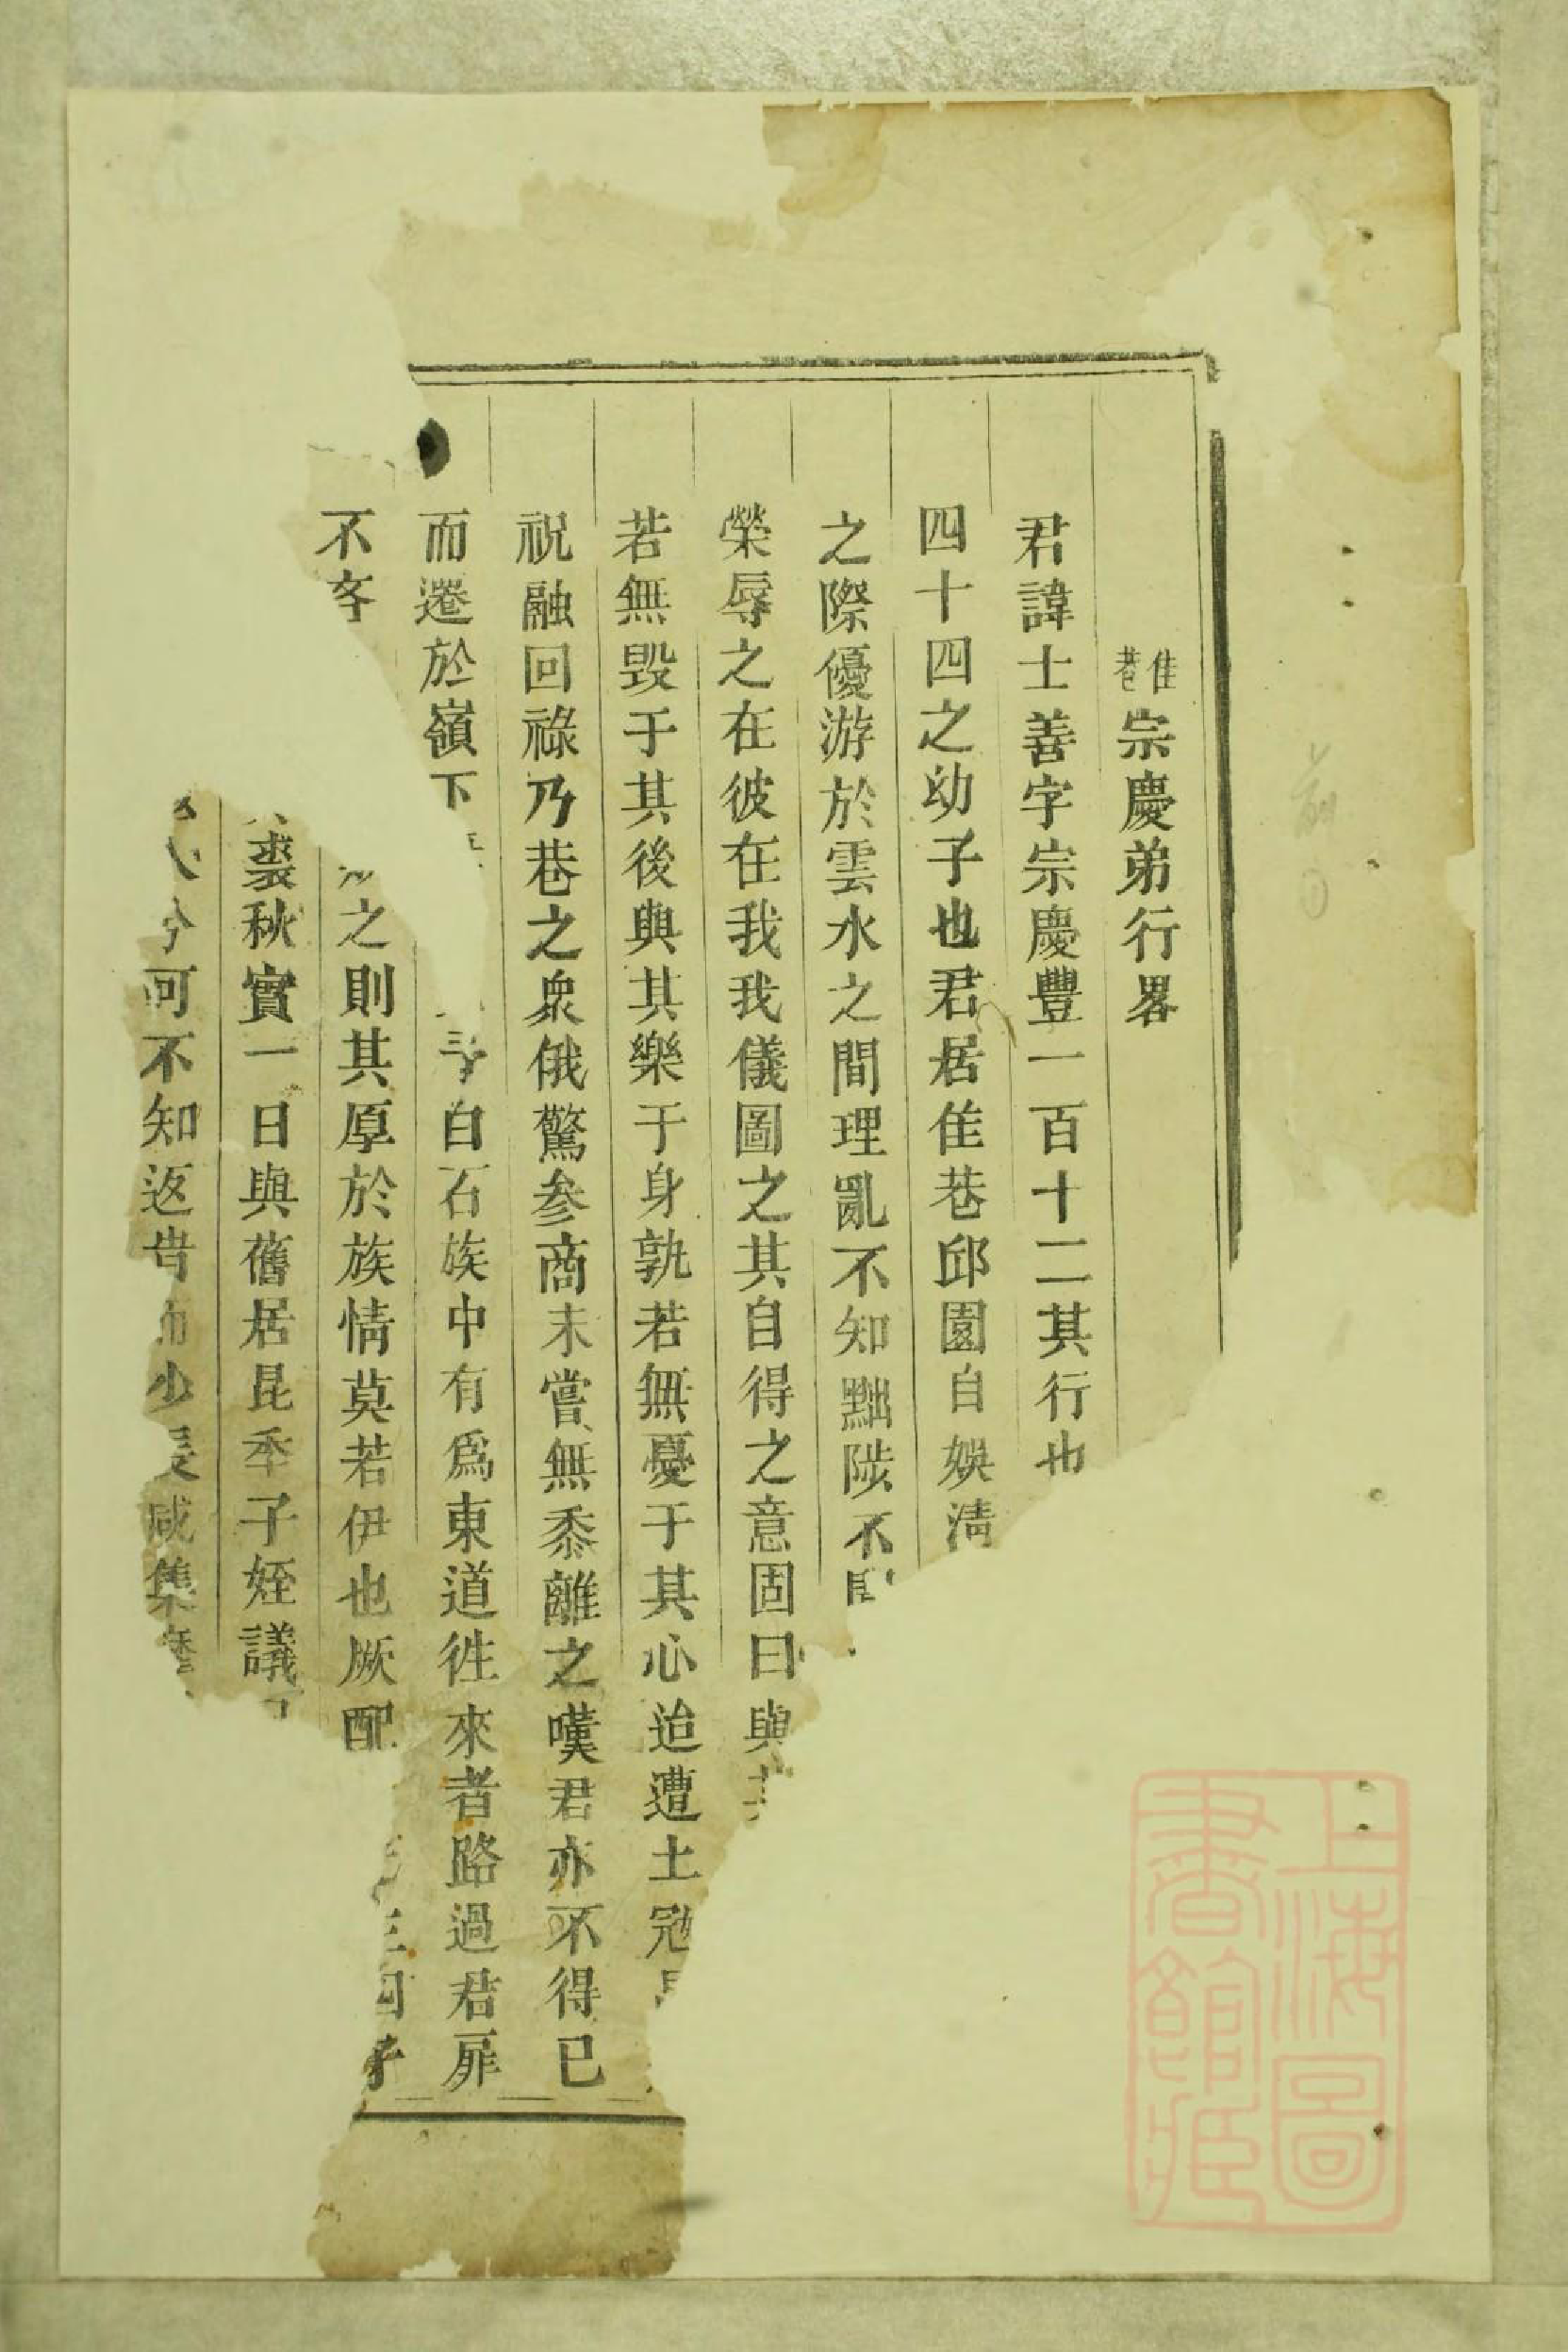 佳巷宗慶弟行畧
君諱士善字宗慶豐一百十二其行也
四十四之幼子也君居佳巷邱園自娛清
之際優游於雲水之間理亂不知黜陟不聞
榮辱之在彼在我我儀圖之其自得之意固曰與其
若無毀于其後與其樂于身孰若無憂于其心迨遭土冦
祝融回祿乃巷之衆俄驚參商未嘗無黍離之嘆君亦不得已
而遷於嶺下白石族中有爲東道徃來者路過君扉
不吝之則其厚於族情莫若伊也厥配三四子
裘秋實一日與舊居昆季子姪議
今可不知返昔而少長咸集
上海圖書館藏